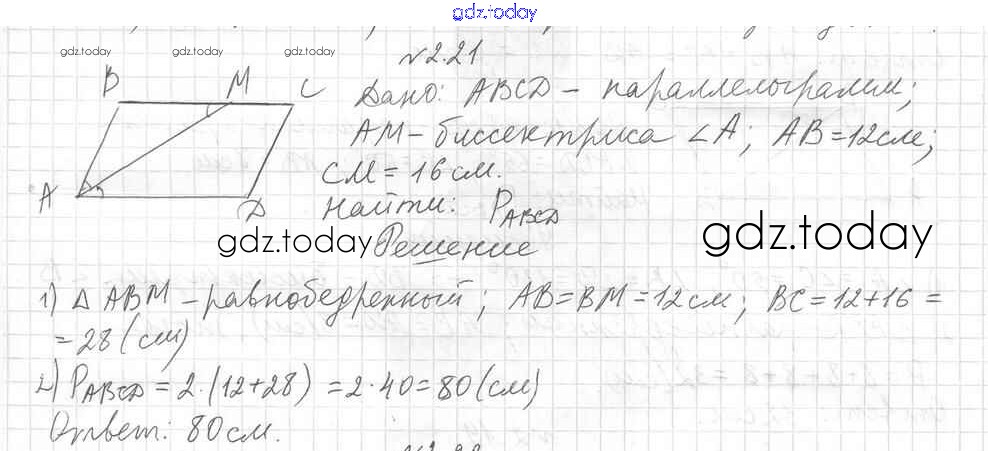 gdz.today
№2.21
gdz.today gdz.today gdz.today
B M C
Дано: ABCD – параллелограмм;
AM – биссектриса ∠A; AB = 12 см;
CM = 16 см.
A D
Найти: P_ABCD
gdz.today Решение gdz.today
1) △ ABM – равнобедренный; AB = BM = 12 см; BC = 12 + 16 =
= 28 (см)
2) P_ABCD = 2·(12+28) = 2·40 = 80 (см)
Ответ: 80 см.